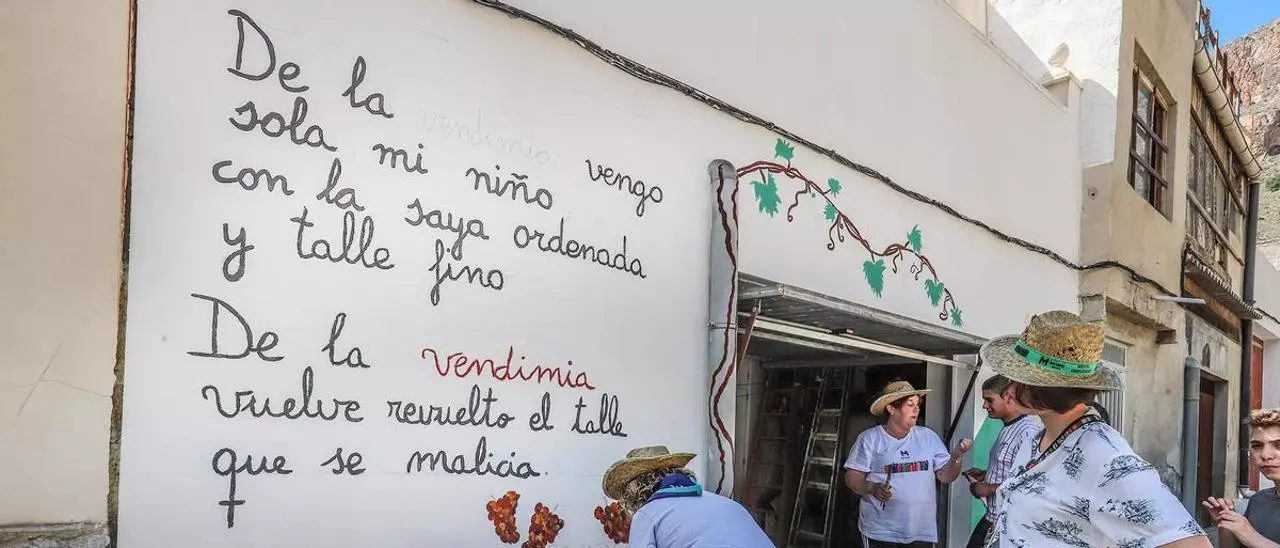 De la vendimia vengo
sola mi niño
con la saya ordenada
y talle fino
De la vendimia
vuelve revuelto el talle
que se malicia.